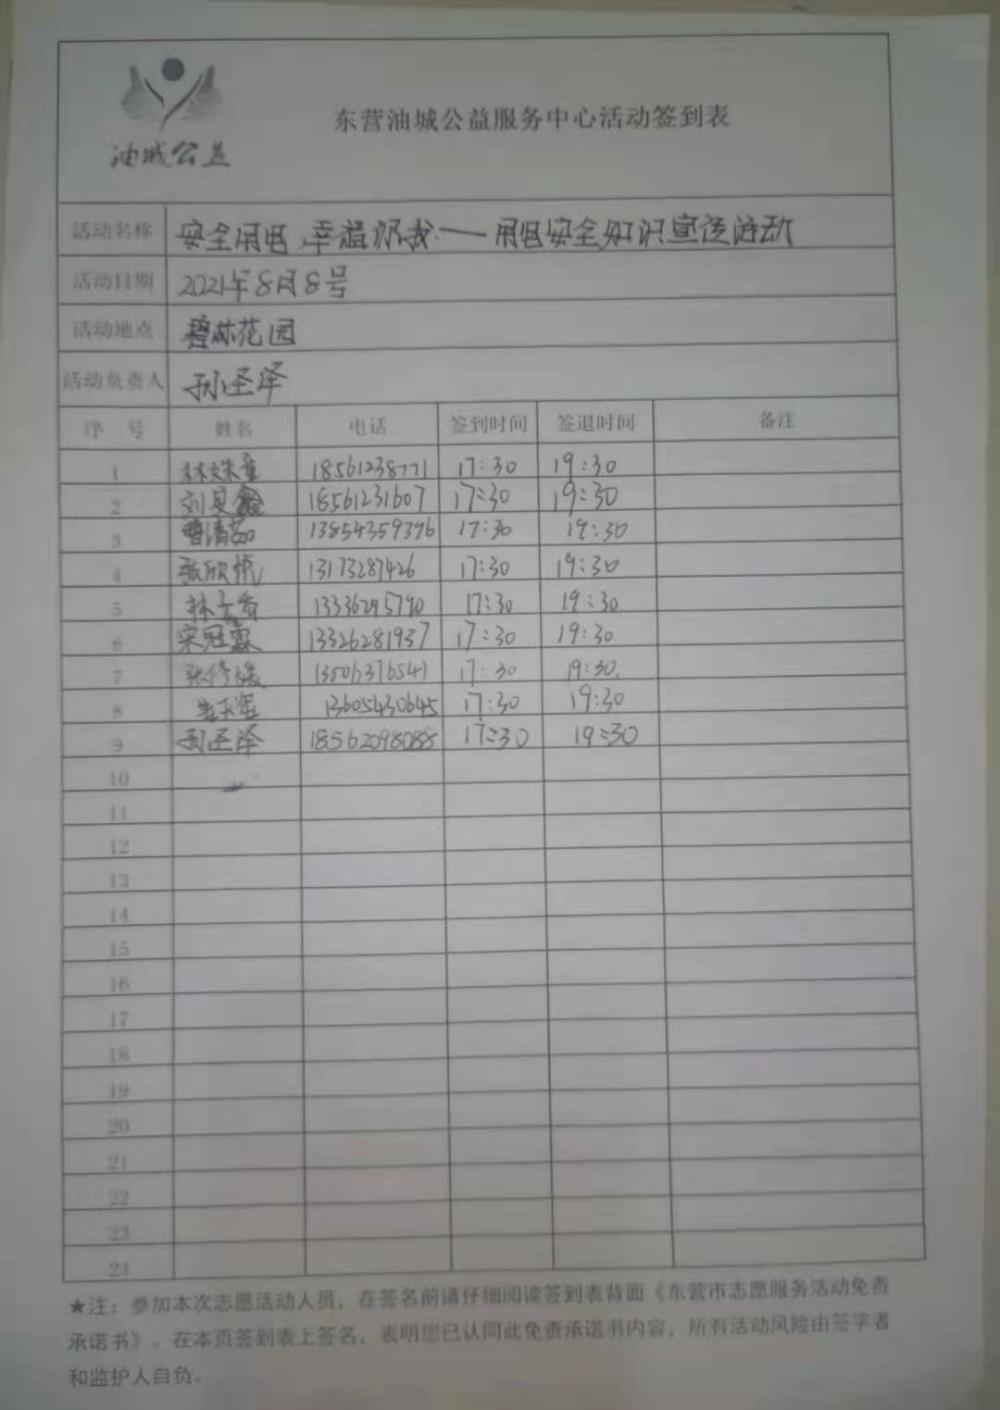 油城公益
东营油城公益服务中心活动签到表
活动名称 安全用电,幸福你我——用电安全知识宣传活动
活动日期 2021年8月8号
活动地点 碧林花园
活动负责人 孙圣泽
序 号 姓名 电话 签到时间 签退时间 备注
1 林姝童 18561238771 17:30 19:30
2 刘 18561231607 17:30 19:30
3 曹清茹 13854359376 17:30 19:30
4 张欣悦 13173287426 17:30 19:30
5 林 13336295790 17:30 19:30
6 宋冠霖 13326281937 17:30 19:30
7 张 13506376541 17:30 19:30.
8 13605430645 17:30 19:30
9 孙圣泽 18562098088 17:30 19:30
10
11
12
13
14
15
16
17
18
19
20
21
22
23
24
★注：参加本次志愿活动人员，在签名前请仔细阅读签到表背面《东营市志愿服务活动免责
承诺书》。在本页签到表上签名，表明您已认同此免责承诺书内容，所有活动风险由签字者
和监护人自负。